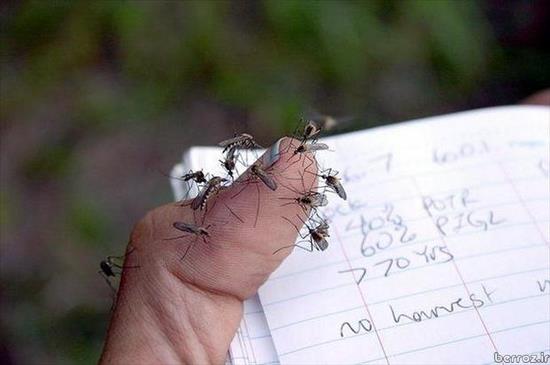 7 601
40% POTR
60% PIGL
>70 yrs
no harvest
berroz.ir